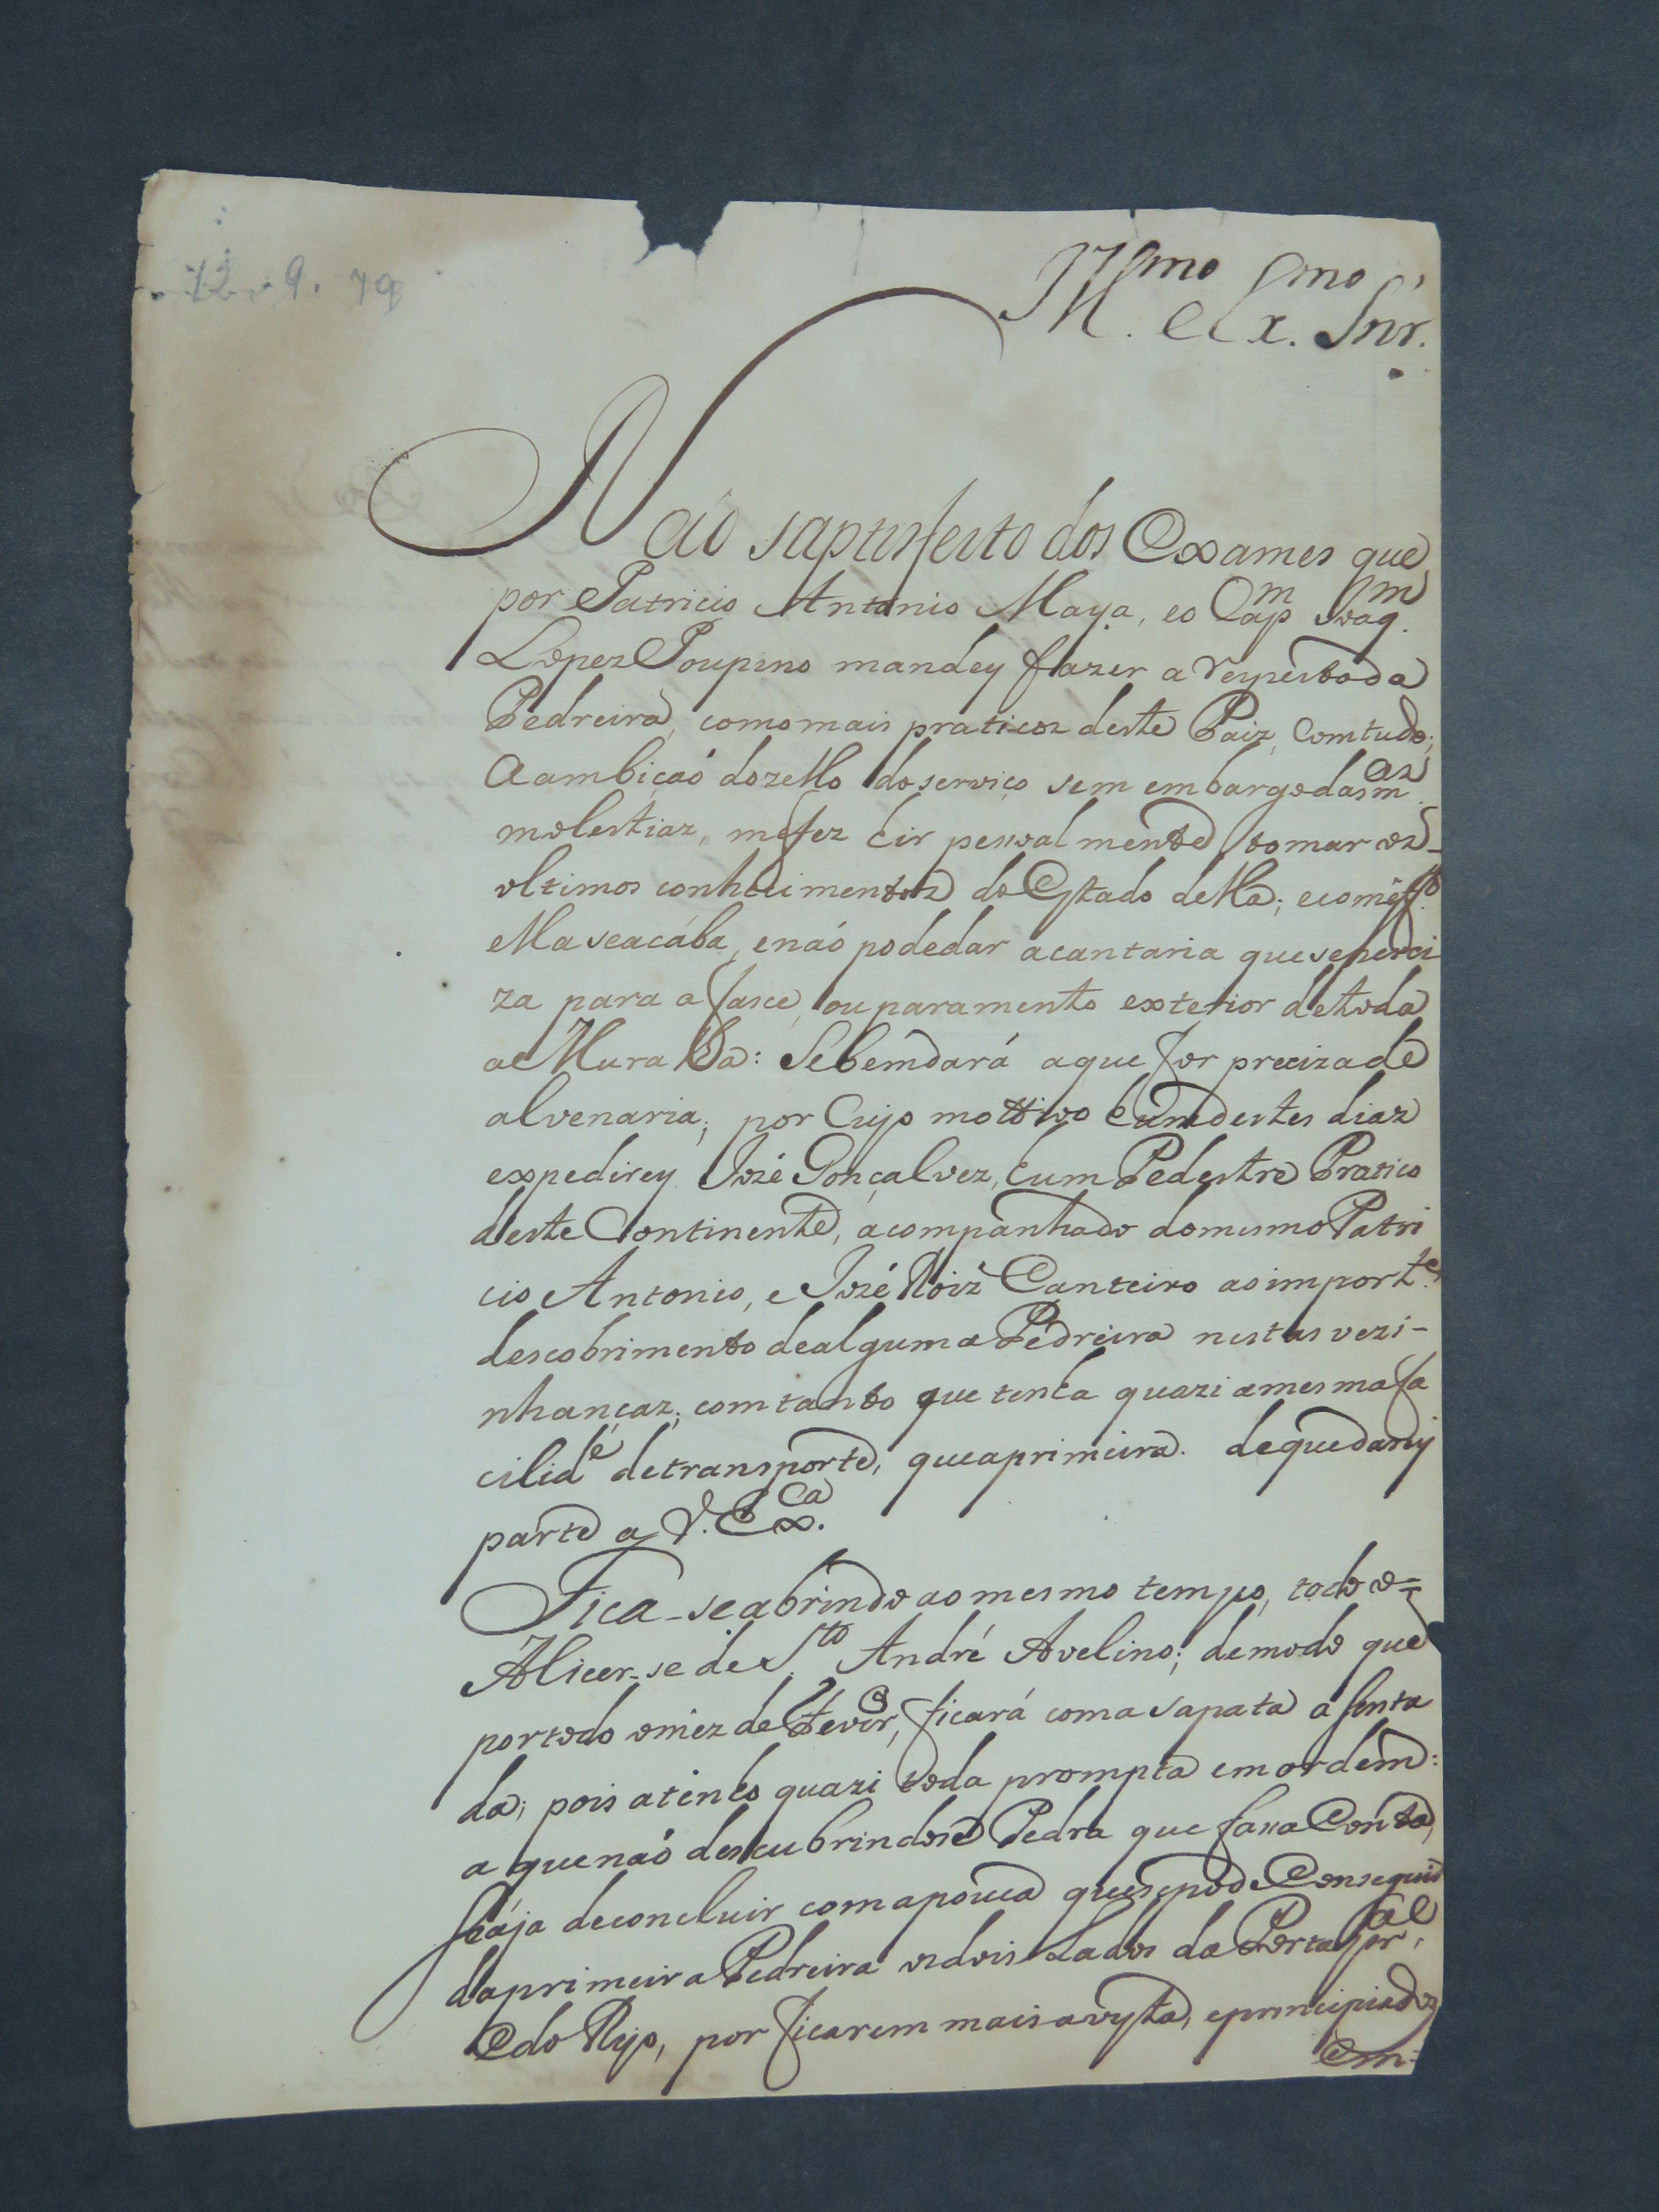 12. 9. 79
Ill.mo e Ex.mo Snr.
Naó saptisfeito dos Exames que
por Patricio Antonio Maya, eo Cap.m Joaq.m
Lopez Poupino mandey fazer a respeito da
Pedreira, como mais praticoz deste Paiz, Comtudo;
A ambiçaó do zello do serviço sem embargo das m.as
molestiaz, me fez hir pesoal mente tomar oz
oltimos conhecimentoz do Estado della; e com eff.to
ella se acába, e naó pode dar a cantaria que se perci
za para a fasce, ou paramento exterior de toda
a Muralha: Se bem dará a que for preciza de
alvenaria; por Cujo mottivo hum destes diaz
expedirey Jozé Gonçalvez, hum Pedestre Pratico
deste Continente, acompanhado do mesmo Patri
cio Antonio, e Jozé Roiz Canteiro ao import.e
descobrimento de alguma Pedreira nestas vezi-
nhançaz; com tanto que tenha quazi a mesma fa
cilid.e de transporte, que a primeira. de que darey
parte a V. Ex.ca
Fica-se abrindo ao mesmo tempo, todo o=
Alicer-se de S.to André Avelino; de modo que
por todo o mez de Fever.o, ficará com a sapata a senta
da; pois a tenho quazi toda prompta em ordem:
a que naó descubrindose Pedra que fasa Conta,
hája de concluir com a pouca que se pode Conseguir
da primeira Pedreira os dois Lados da Porta pr.al
e do Ryo, por ficarem mais a vysta, e principiados
em=